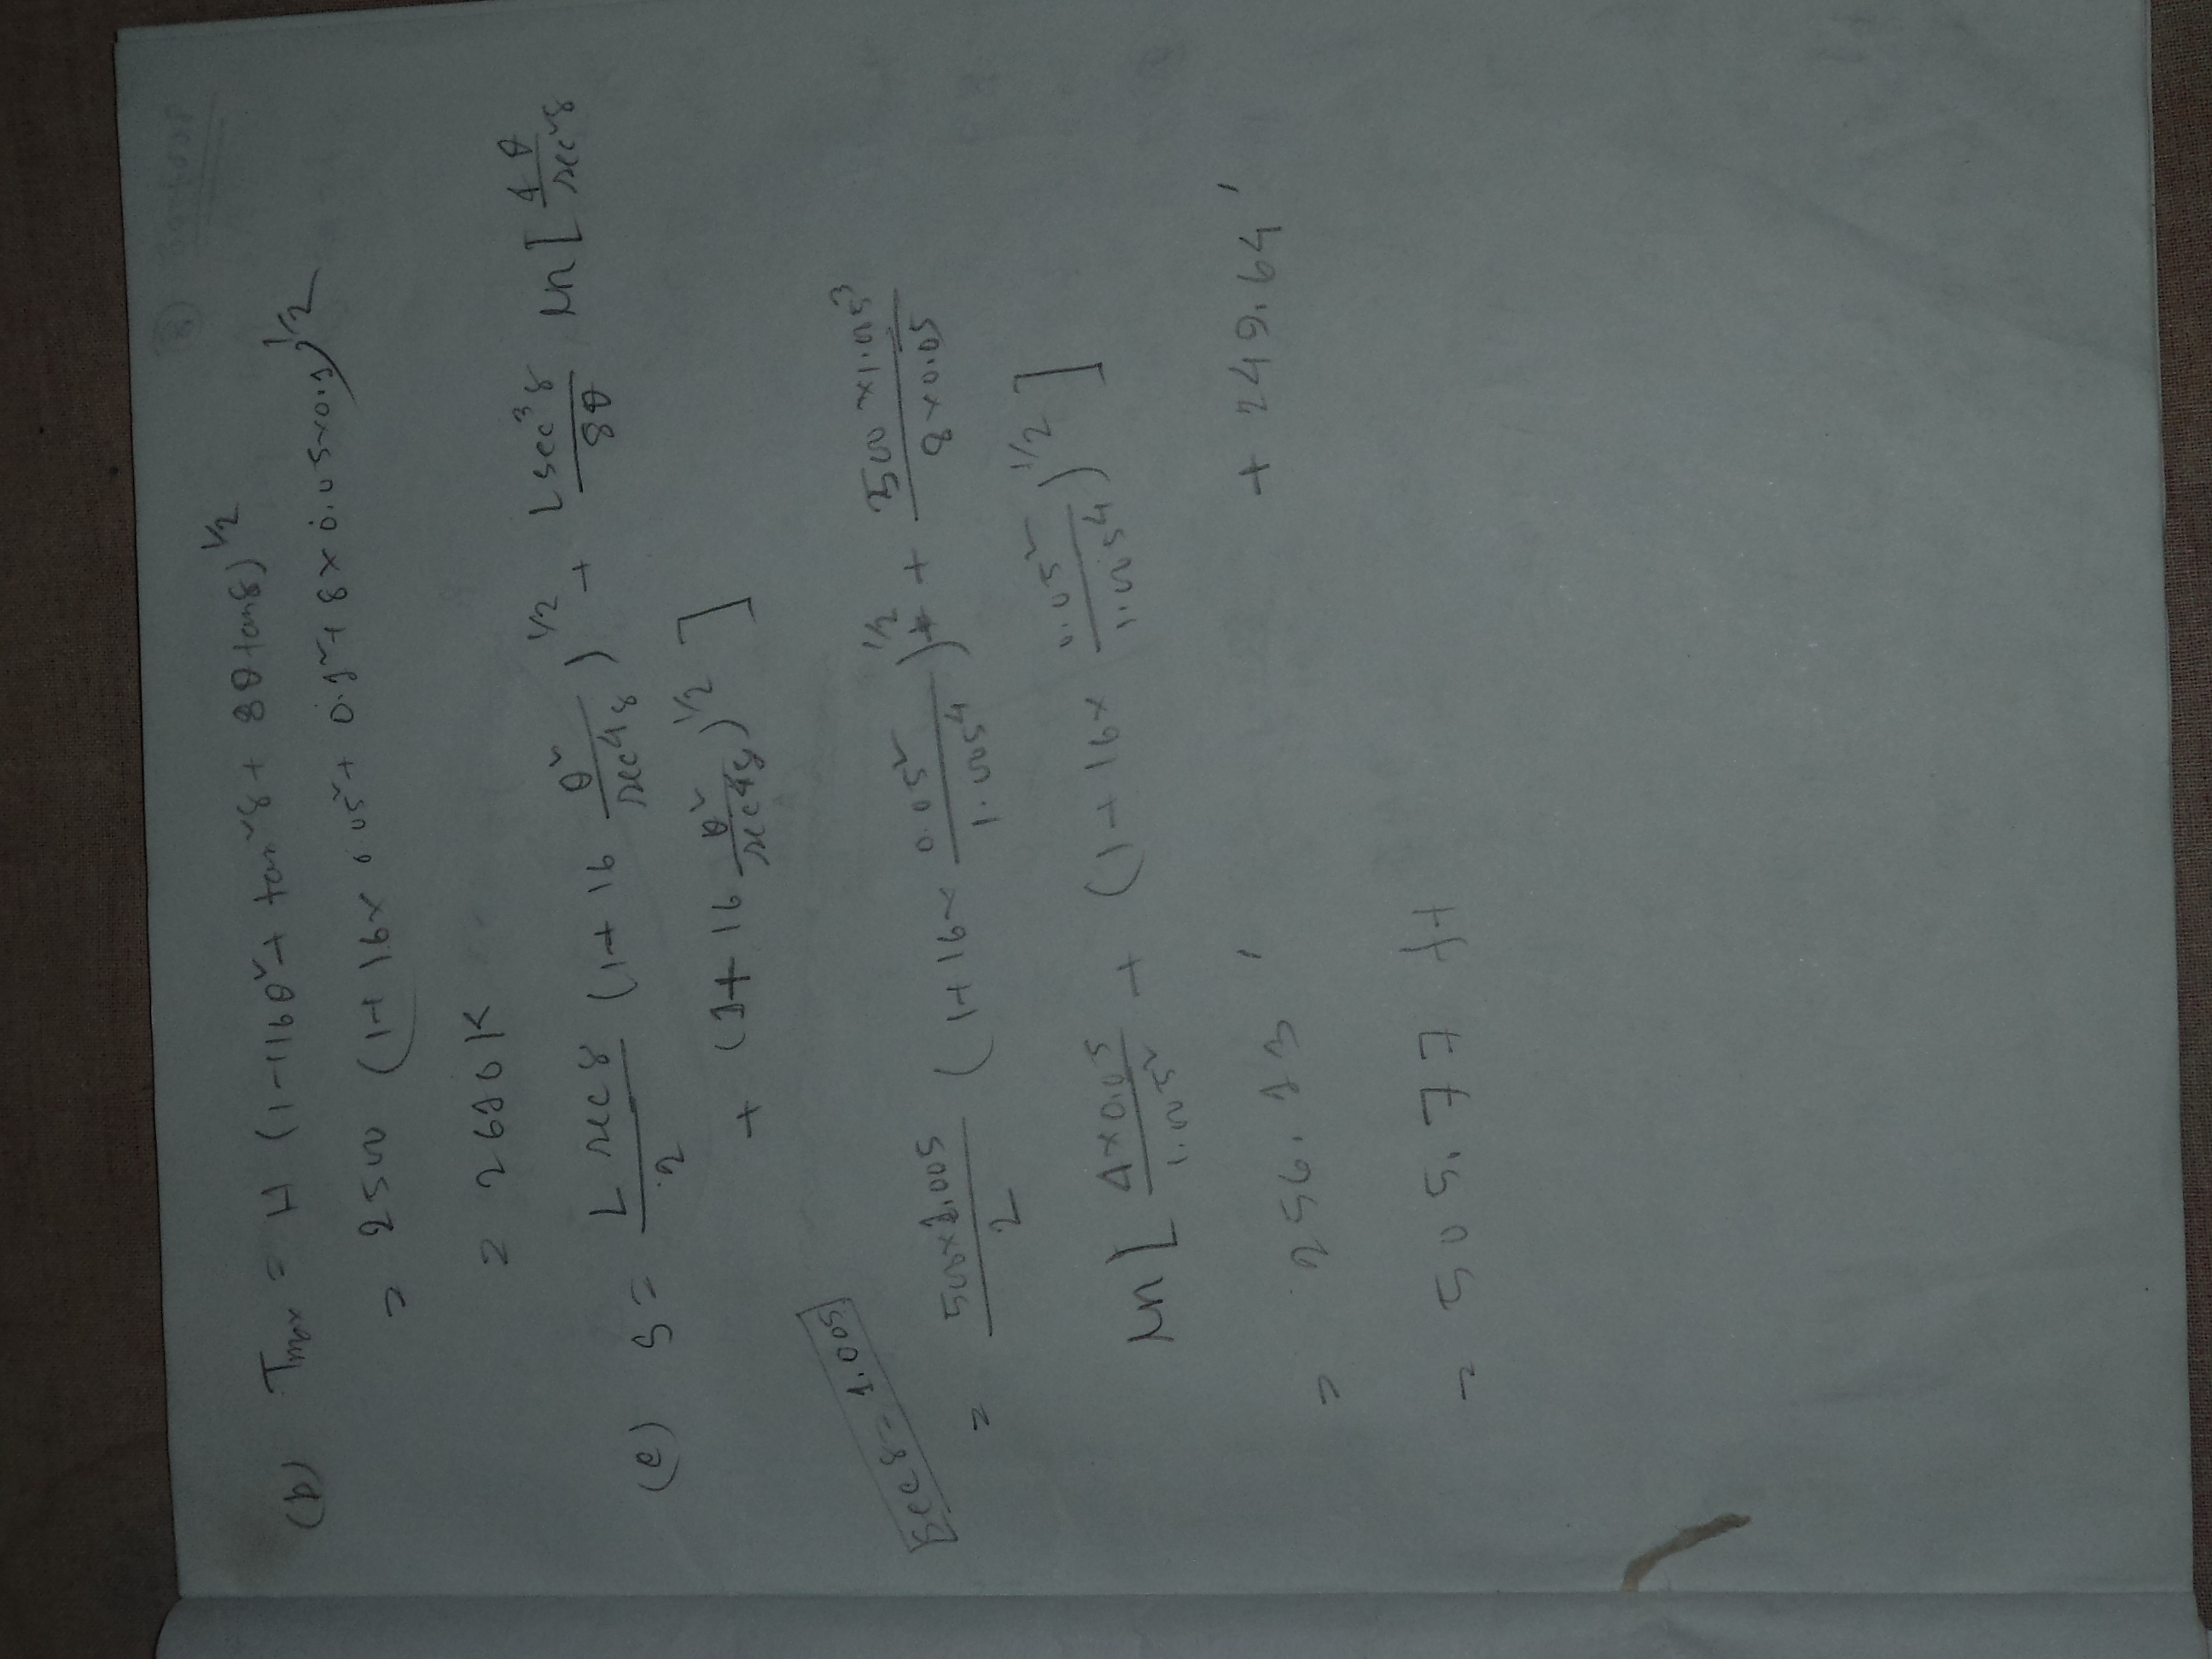 (b) Tmax = H (1+16θ² + tan²γ + 8θtanγ)^1/2
= 2500 (1+16x0.05² + 0.1² + 8x0.05x0.1)^1/2
= 2610K
(c) S = L secγ/2 (1+16 θ²/sec⁴γ)^1/2 + Lsec³γ/8θ ln[4θ/sec²γ
+ (1+16 θ²/sec⁴γ)^1/2]
secγ = 1.005
= 500x1.005/2 (1+16x 0.05²/1.005⁴)^1/2 + 500x1.005³/8x0.05
ln[4x0.05/1.005² + (1+16x 0.05²/1.005⁴)^1/2]
= 256.13' + 249.64'
= 505.77 ft